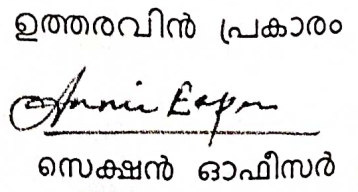 ഉത്തരവിൻ പ്രകാരം
Annie Eapen
സെക്ഷൻ ഓഫീസർ